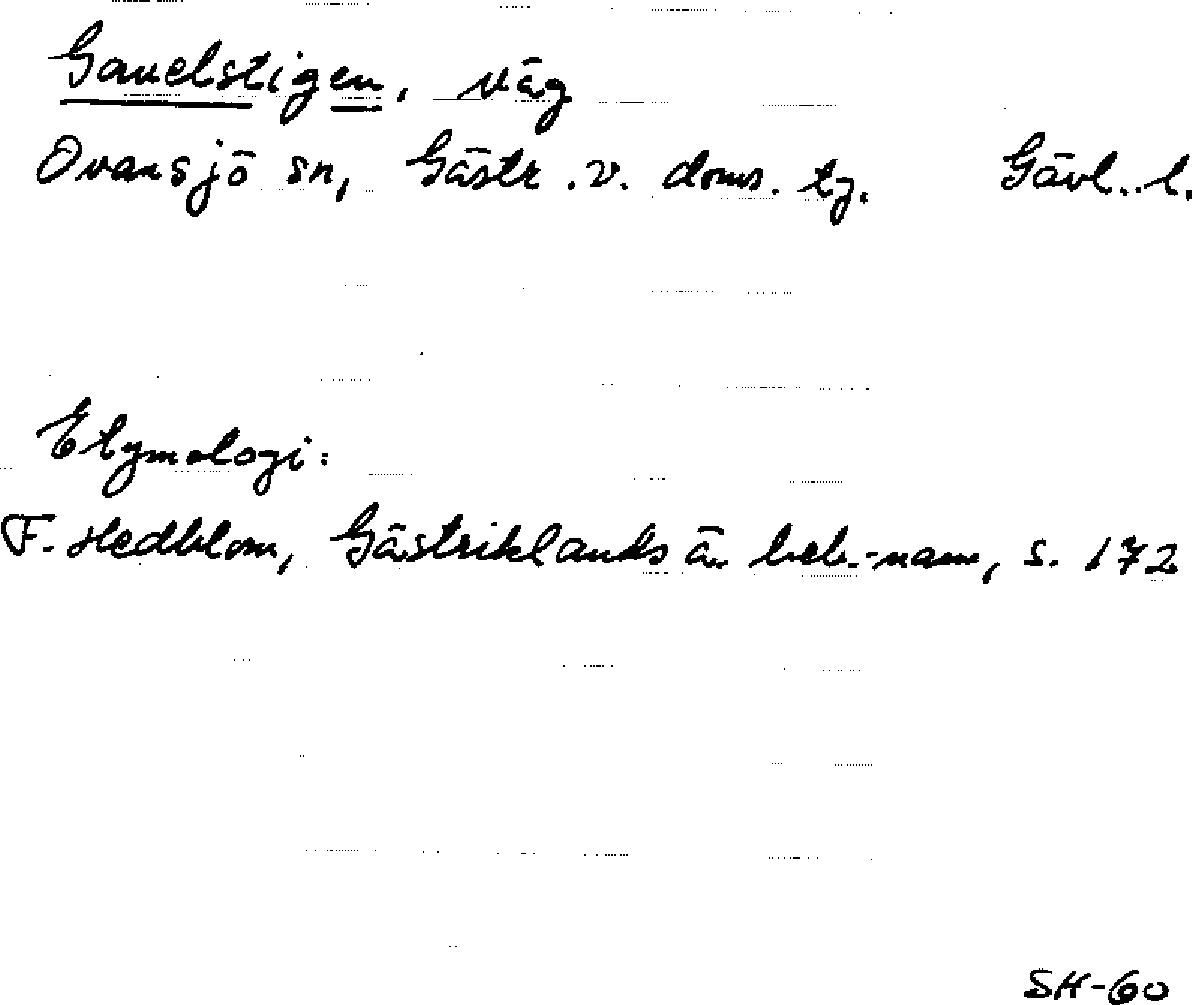 Gavelstigen, väg
Ovansjö sn, Gästr. v. doms. tg. Gävl. l.
Etymologi:
F. Hedblom, Gästriklands ä. beb.-namn, s. 172
SH-60